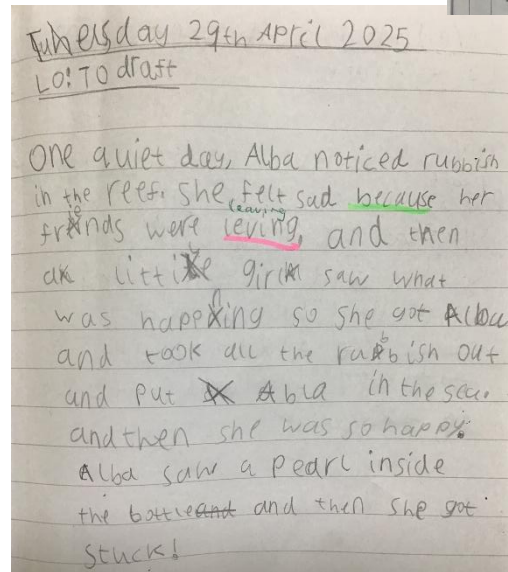 Tuhesday 29th April 2025
LO: TO draft
One quiet day, Alba noticed rubbish
in the reef. She felt sad because her
leaving
friends were leving, and then
a little girl saw what
was happening so she got Alba
and took all the rubbish out
and put Abla in the sea.
and then she was so happy.
Alba saw a pearl inside
the bottle and and then she got
stuck!